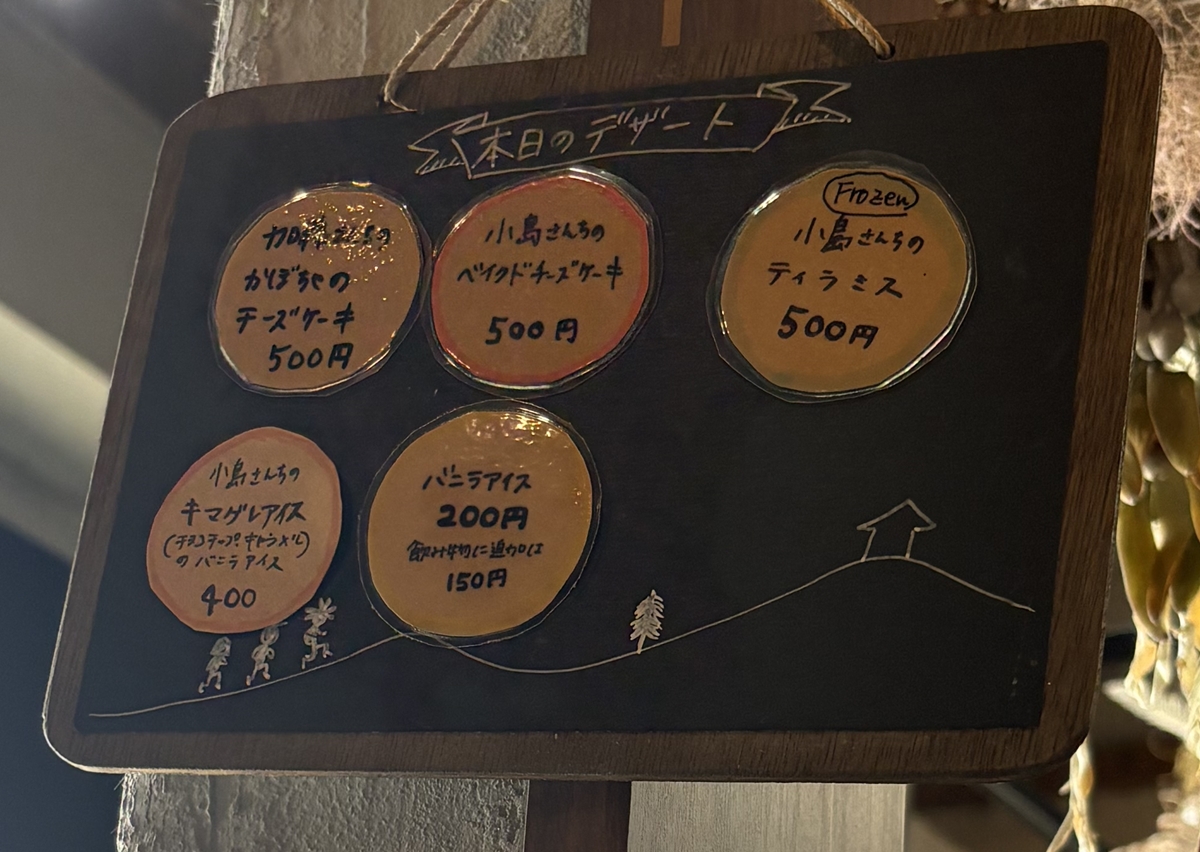 本日のデザート
加藤さんちの
かぼちゃの
チーズケーキ
500円
小島さんちの
ベイクドチーズケーキ
500円
Frozen
小島さんちの
ティラミス
500円
小島さんちの
キマグレアイス
(チョコチップ キャラメル)
の バニラアイス
400
バニラアイス
200円
飲み物に追加は
150円